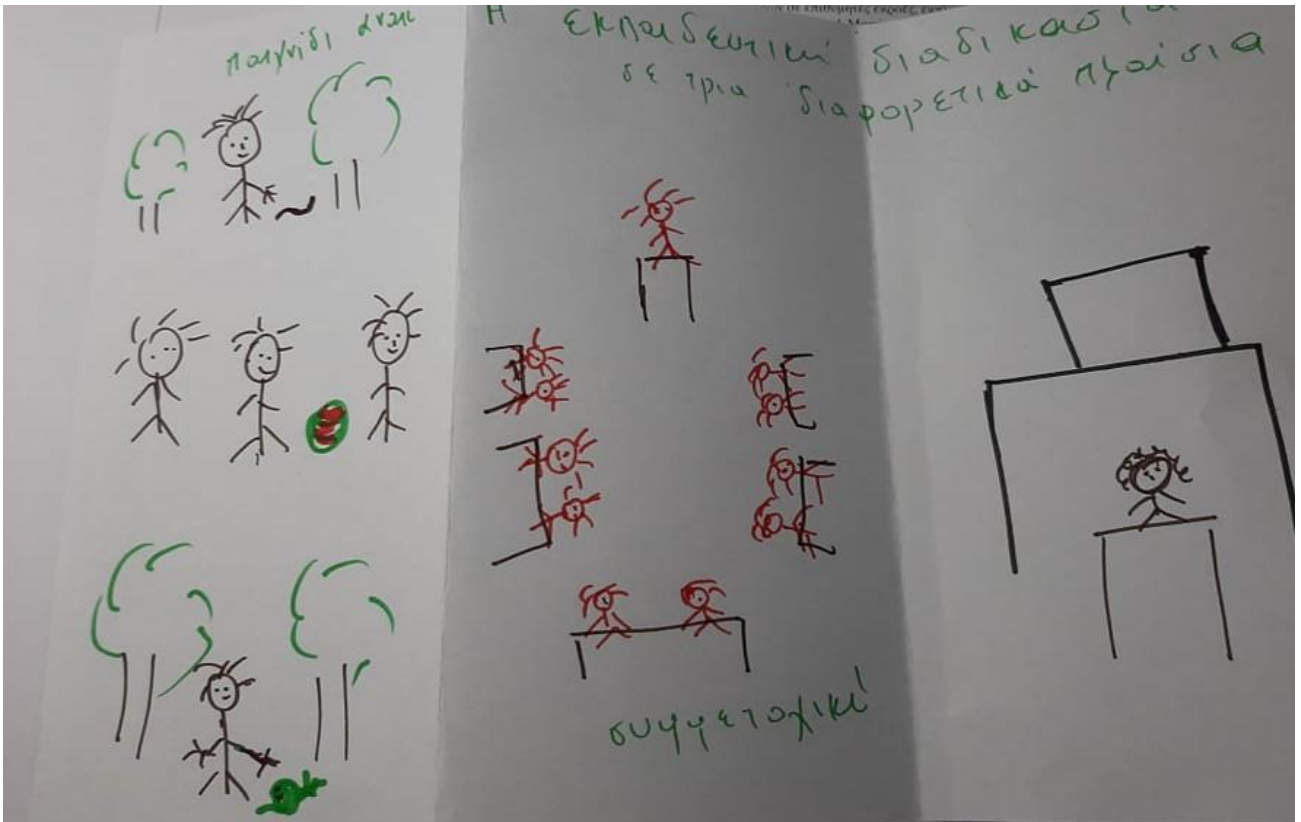 παιγνίδι
Η εκπαιδευτική διαδικασία
σε τρια διαφορετικά πλαίσια
συμμετοχική